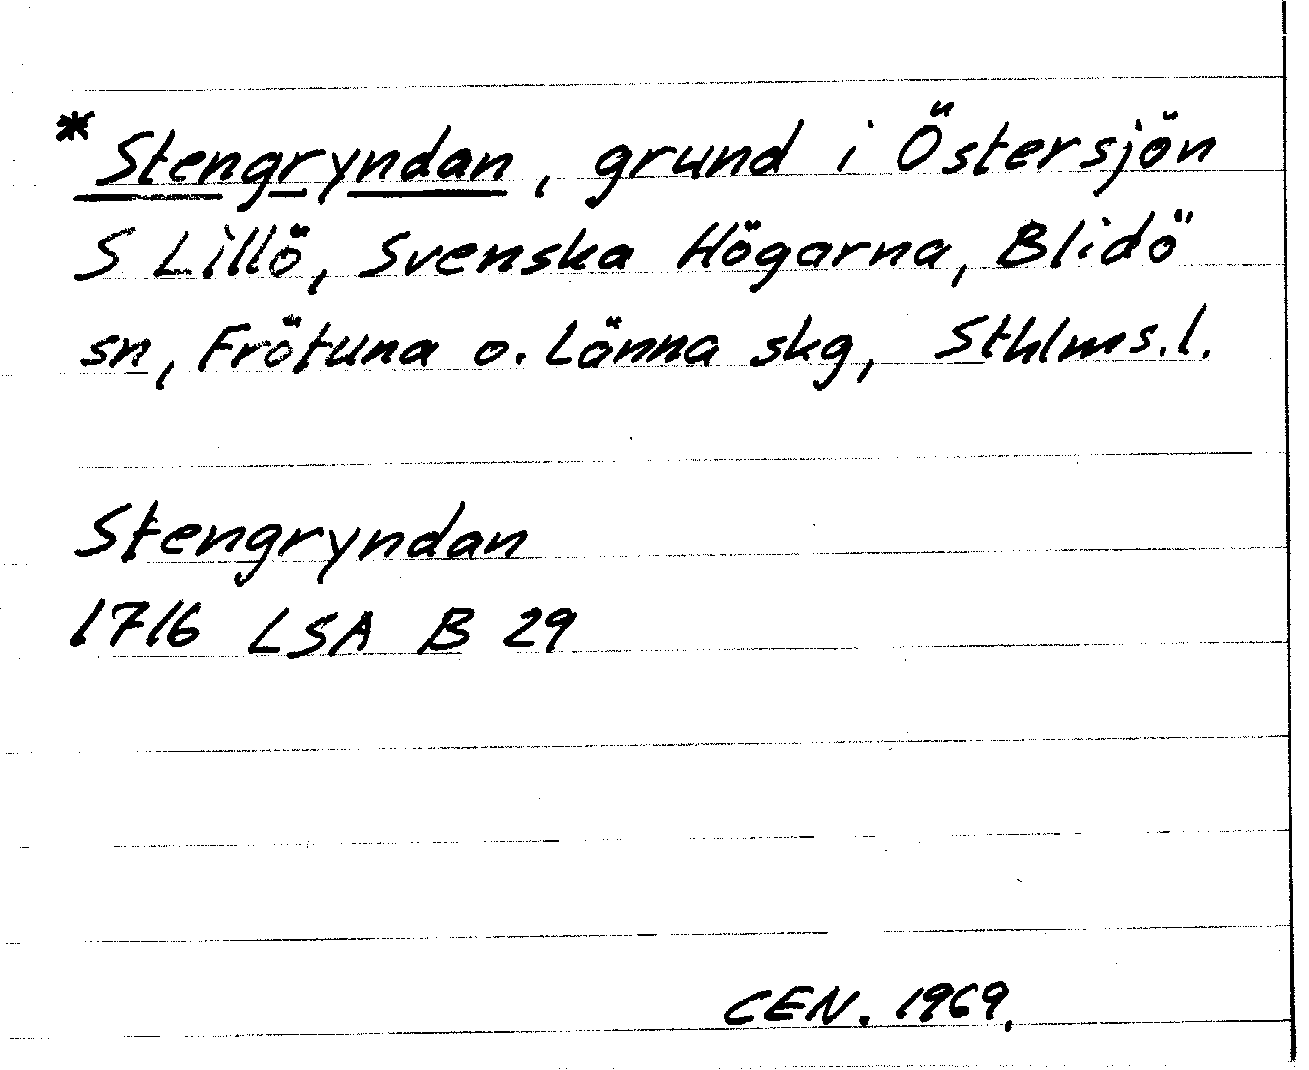 * Stengryndan, grund i Östersjön
S Lillö, Svenska Högarna, Blidö
sn, Frötuna o. Länna skg, Sthlms.l.
Stengryndan
1716 LSA B 29
CEN. 1969.